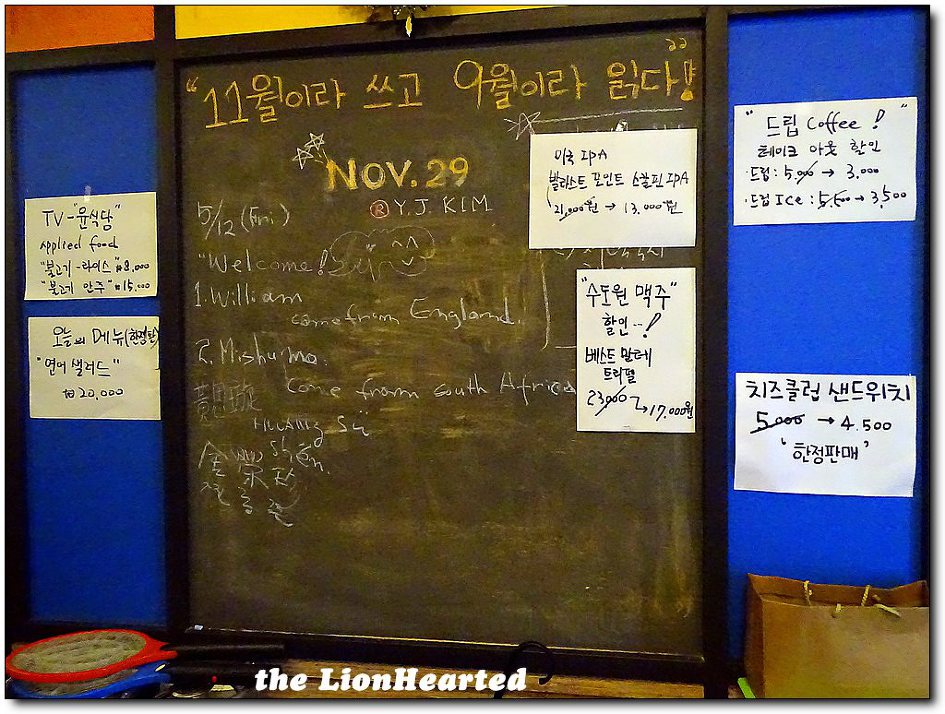 "11월이라 쓰고 9월이라 읽다!"
NOV. 29
® Y.J. KIM
5/12 (Fri.)
"Welcome!
1. William
come from England.
2. Mishuma.
come from south Africa
HUANG Si
TV-"윤식당"
applied food
"불고기-라이스" ₩8,000
"불고기 안주" ₩15,000
오늘의 메뉴(한정판)
"연어 샐러드"
₩20,000
미국 IPA
발라스트 포인트 스컬핀 IPA
21,000원 → 13,000원
"수도원 맥주"
할인..!
베스트 말레
트리펠
23,000 → 17,000원
"드립 Coffee !"
테이크 아웃 할인
·드립: 5,000 → 3,000
·드립 Ice: 5,500 → 3,500
치즈클럽 샌드위치
5,000 → 4,500
'한정판매'
the LionHearted